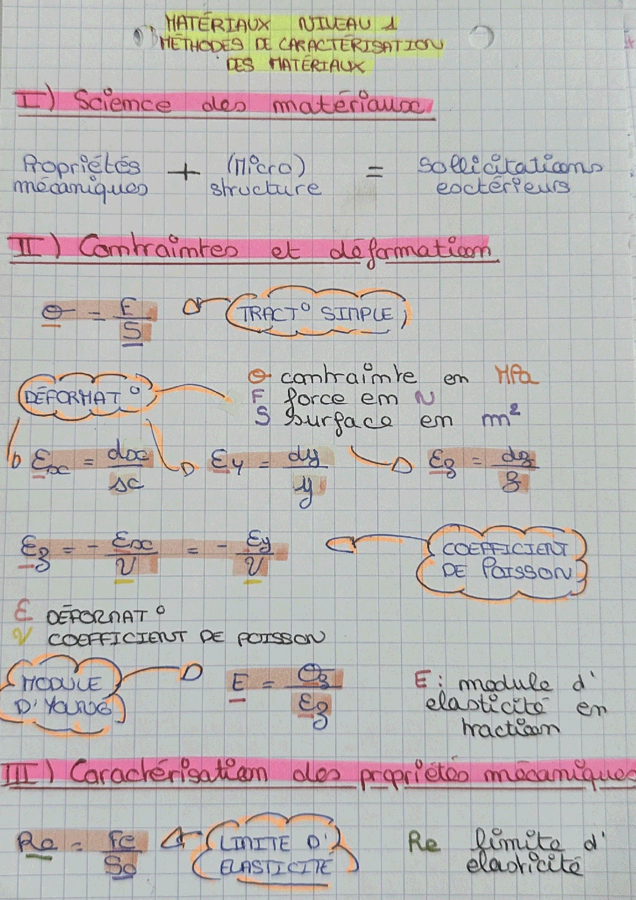 MATÉRIAUX NIVEAU 1
MÉTHODES DE CARACTÉRISATION
DES MATÉRIAUX
I) Science des matériaux
Propriétés + (Micro) = sollicitations
mécaniques structure extérieurs
II) Contraintes et déformation
σ = F/S TRACT° SIMPLE
σ contrainte en MPa
DÉFORMAT° F force em N
S surface en m²
εx = dx/x εy = dy/y εz = dz/z
εz = - εx/ν = - εy/ν COEFFICIENT
DE POISSON
ε DÉFORMAT°
ν COEFFICIENT DE POISSON
MODULE E = σz/εz E : module d'
D'YOUNG elasticité en
traction
III) Caractérisation des propriétés mécaniques
Re = Fe/So LIMITE D' Re limite d'
ELASTICITÉ elasticité